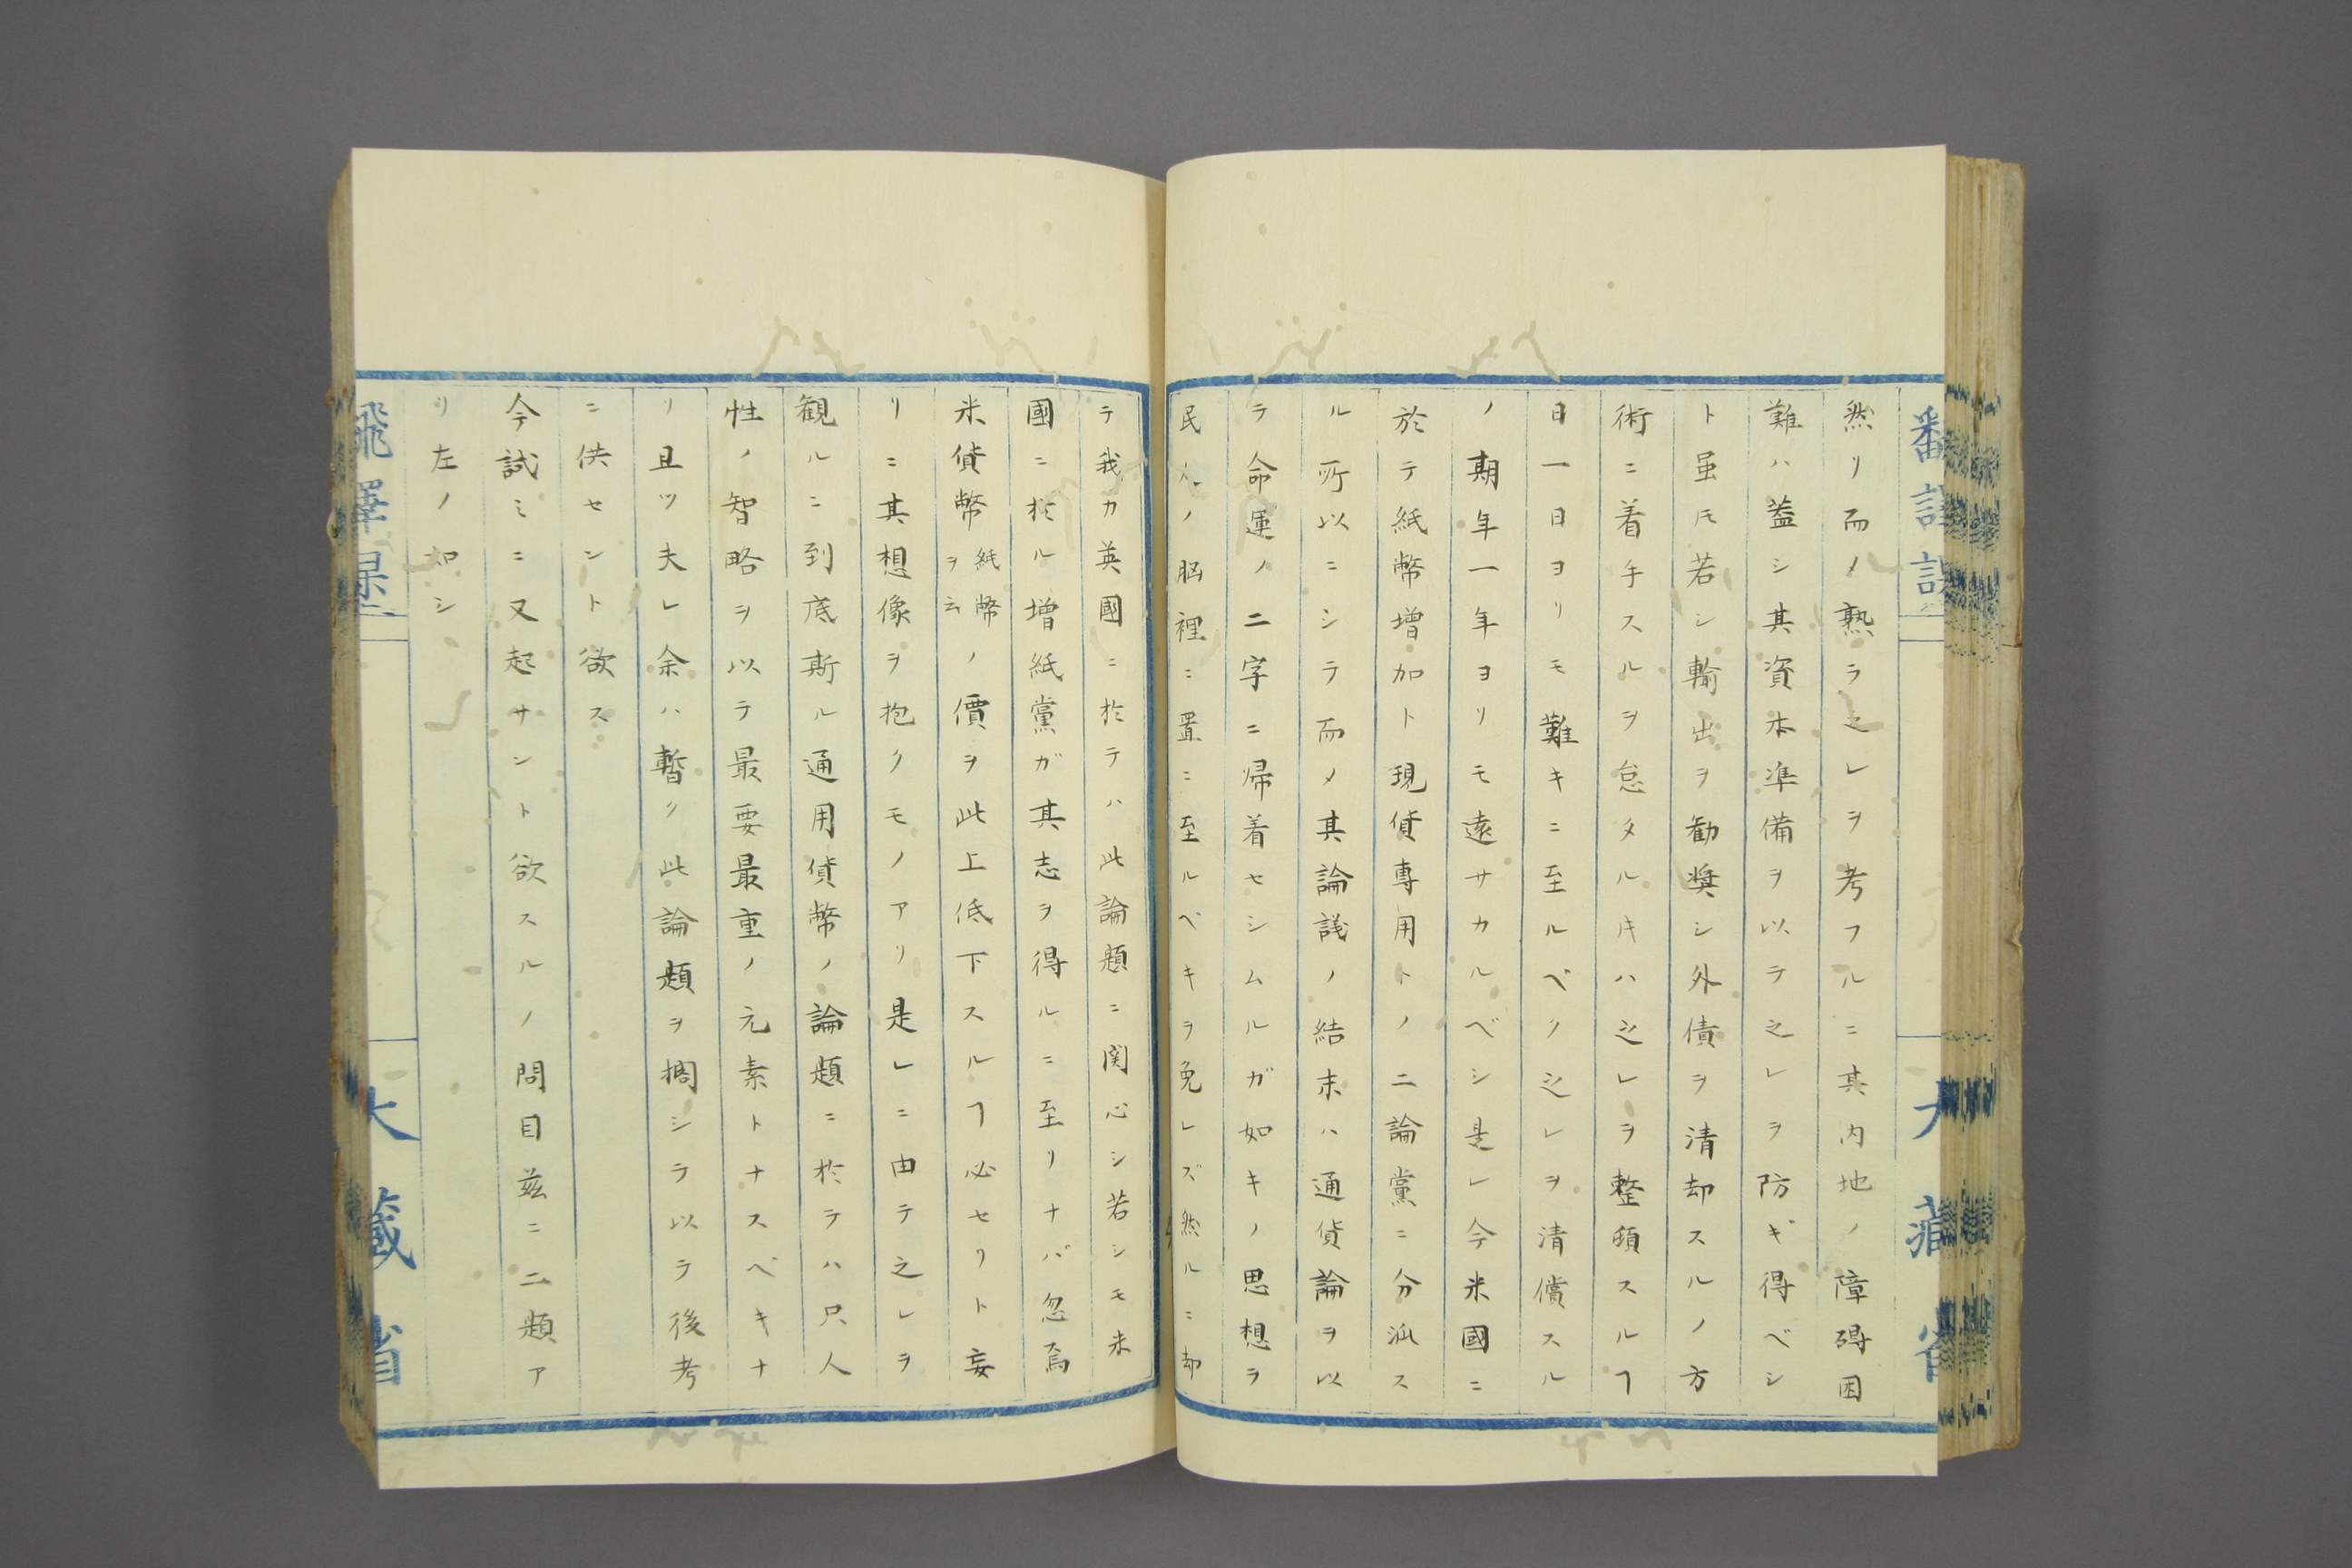 然リ而〆熟ラ之レヲ考フルニ其内地ノ障碍困
難ハ蓋シ其資本準備ヲ以テ之レヲ防ギ得ベシ
ト虽𪜈若シ輸出ヲ勧奨シ外債ヲ清却スルノ方
術ニ着手スルヲ怠タルキハ之レヲ整頓スルヿ
日一日ヨリモ難キニ至ルベク之レヲ清償スル
ノ期年一年ヨリモ遠サカルベシ是レ今米國ニ
於テ紙幣増加ト現貨専用トノ二論黨ニ分派ス
ル所以ニシテ而〆其論議ノ結末ハ通貨論ヲ以
テ命運ノ二字ニ帰着セシムルガ如キノ思想ヲ
民人ノ脳裡ニ置ニ至ルベキヲ免レズ然ルニ却
テ我カ英國ニ於テハ此論題ニ関心シ若シモ米
國ニ於ル増紙黨ガ其志ヲ得ルニ至リナバ忽焉
米貨幣紙幣ヲ云ノ價ヲ此上低下スルヿ必セリト妄
リニ其想像ヲ抱クモノアリ是レニ由テ之レヲ
観ルニ到底斯ル通用貨幣ノ論題ニ於テハ只人
性ノ智略ヲ以テ最要最重ノ元素トナスベキナ
リ且ツ夫レ余ハ暫ク此論題ヲ擱シテ以テ後考
ニ供セント欲ス
今試ミニ又起サント欲スルノ問目茲ニ二題ア
リ左ノ如シ
大藏省
大藏省